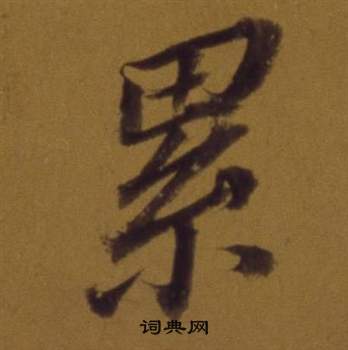 累
词典网